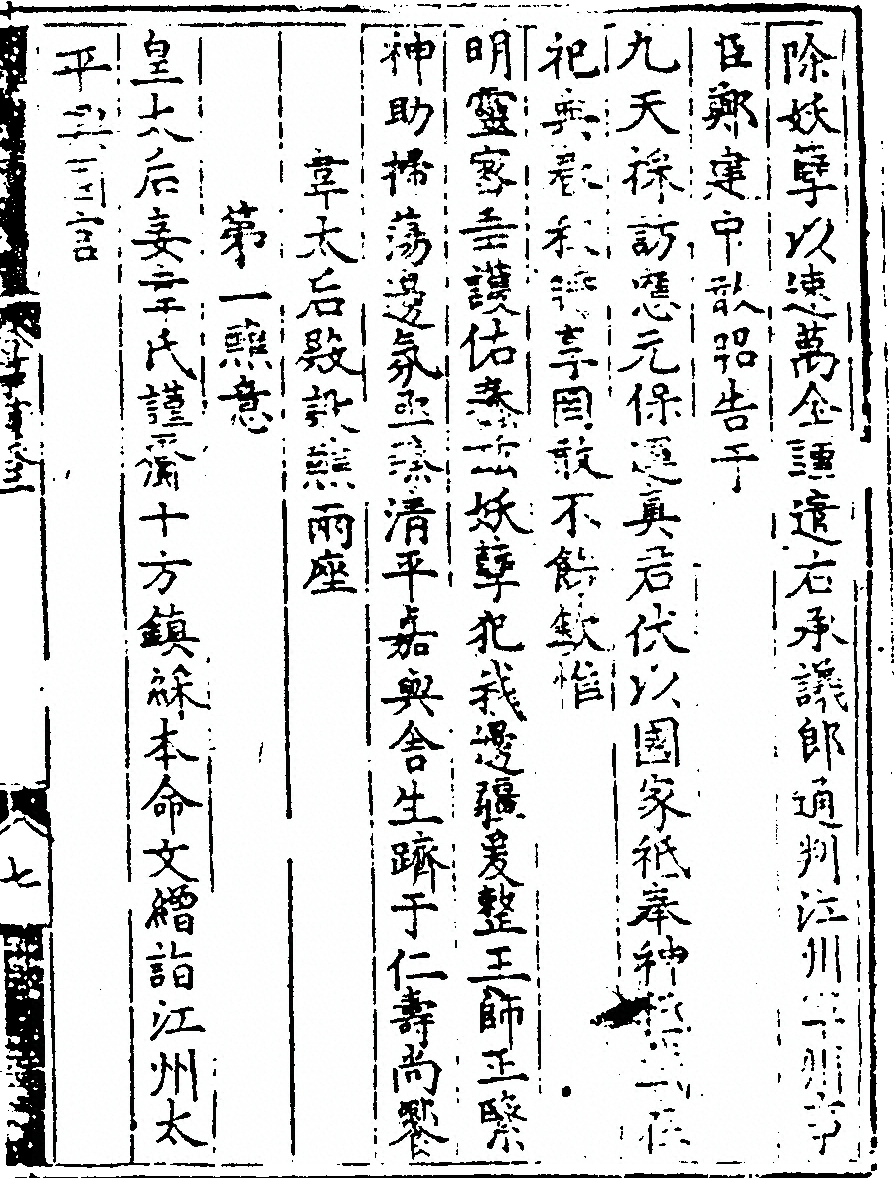 除妖孽以速萬全謹遣右承議郎通判江州軍州事
臣鄭建中敢昭告于
九天採訪應元保運真君伏以國家祗奉神
祀典
享固敢不飭欽惟
明靈密垂護佑
妖孽犯我邊疆爰整王師正繄
神助掃蕩邊氛亟臻清平嘉與含生躋于仁壽尚饗
韋太后殿設醮兩座
第一醮意
皇太后妾韋氏謹齎十方鎮綵本命文繒詣江州太
平興國宮